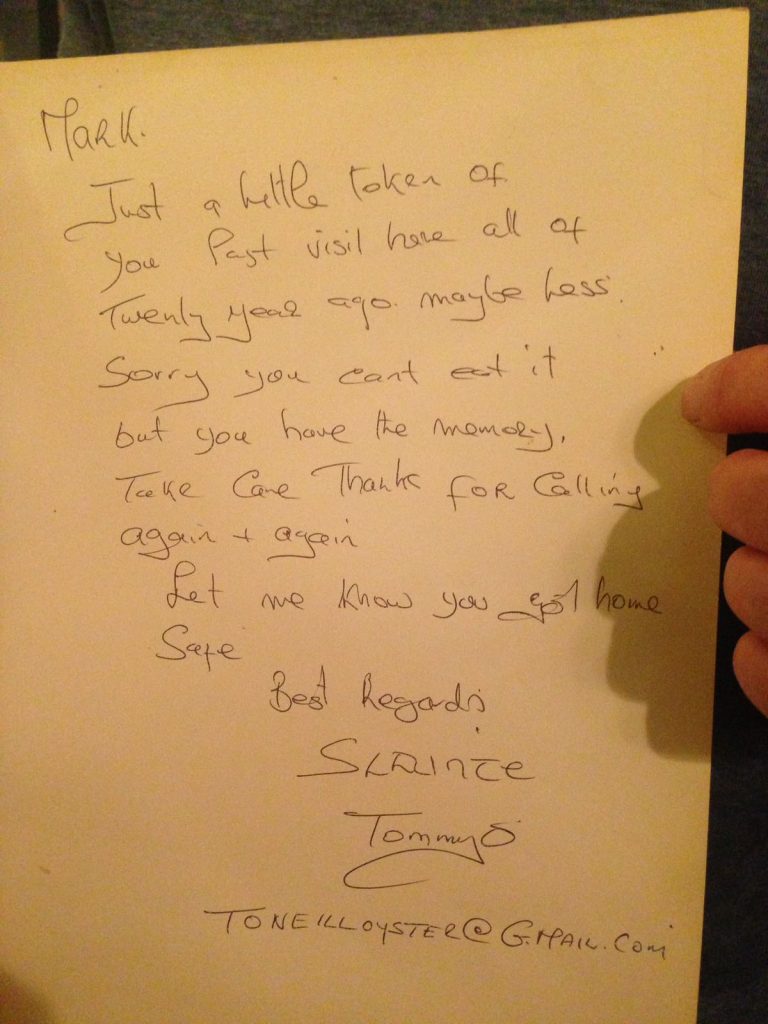 Mark.
Just a little token of
you Past visit here all of
Twenty year ago. maybe less.
Sorry you cant eat it
but you have the memory.
Take Care Thanks for Calling
again + again
Let me know you got home
Safe
Best Regards
SLAINTE
Tommy O
TONEILLOYSTER@GMAIL.COM